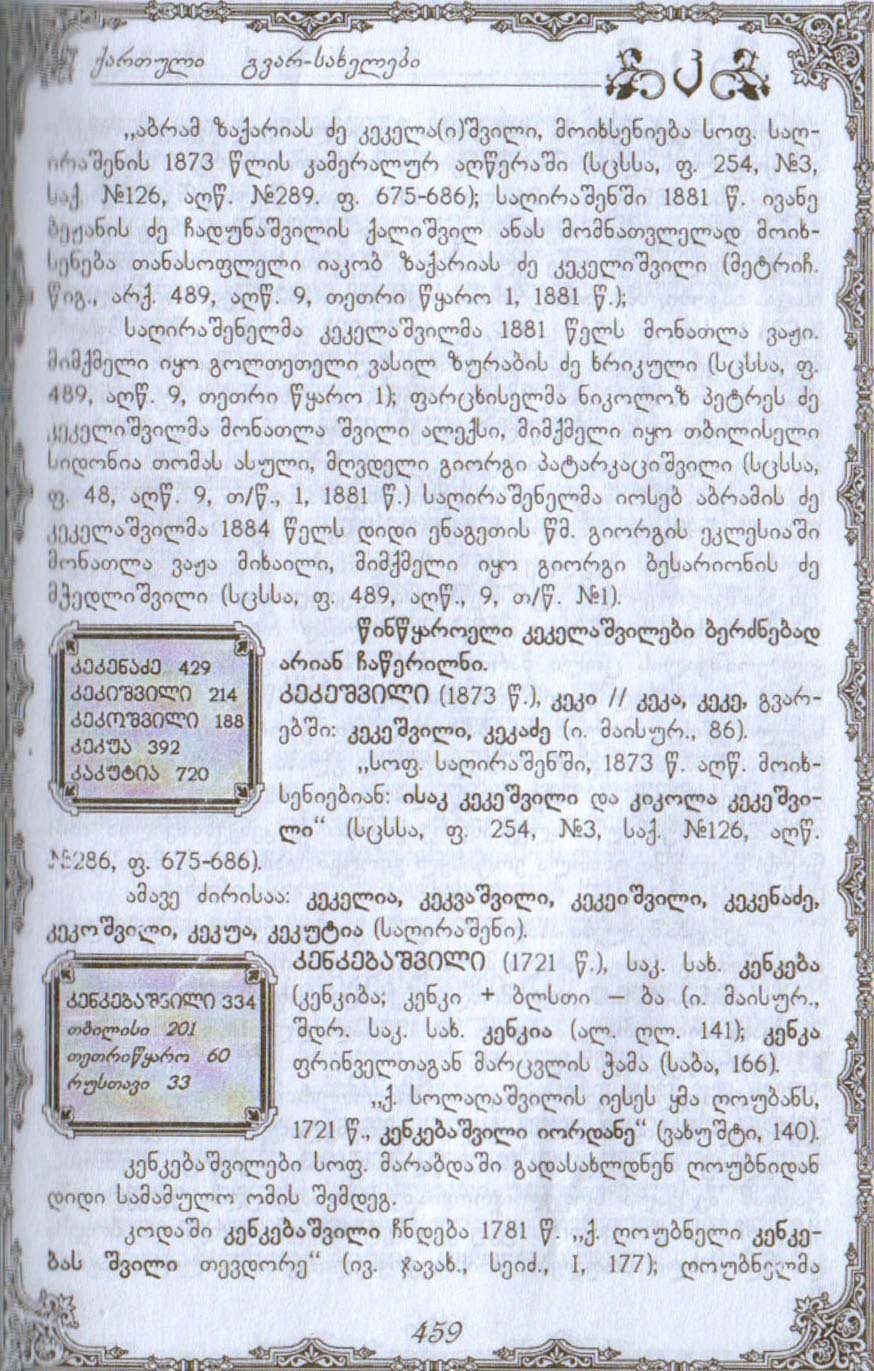 ქართული გვარ-სახელები
კ
„აბრამ ზაქარიას ძე კეკელა(ი)შვილი, მოიხსენიება სოფ. საღ-
ირაშენის 1873 წლის კამერალურ აღწერაში (სცსსა, ფ. 254, №3,
საქ. №126, აღწ. №289. ფ. 675-686); საღირაშენში 1881 წ. ივანე
ბეჟანის ძე ჩადუნაშვილის ქალიშვილ ანას მომნათვლელად მოიხ-
სენება თანასოფლელი იაკობ ზაქარიას ძე კეკელიშვილი (მეტრიჩ.
წიგ., არქ. 489, აღწ. 9, თეთრი წყარო 1, 1881 წ.);
საღირაშენელმა კეკელაშვილმა 1881 წელს მონათლა ვაჟი.
მიმქმელი იყო გოლთეთელი ვასილ ზურაბის ძე ხრიკული (სცსსა, ფ.
489, აღწ. 9, თეთრი წყარო 1); ფარცხისელმა ნიკოლოზ პეტრეს ძე
კეკელიშვილმა მონათლა შვილი ალექსი, მიმქმელი იყო თბილისელი
სიდონია თომას ასული, მღვდელი გიორგი პატარკაციშვილი (სცსსა,
ფ. 48, აღწ. 9, თ/წ., 1, 1881 წ.) საღირაშენელმა იოსებ აბრამის ძე
კეკელაშვილმა 1884 წელს დიდი ენაგეთის წმ. გიორგის ეკლესიაში
მონათლა ვაჟა მიხაილი, მიმქმელი იყო გიორგი ბესარიონის ძე
მჭედლიშვილი (სცსსა, ფ. 489, აღწ., 9, თ/წ. №1).
წინწყაროელი კეკელაშვილები ბერძნებად
არიან ჩაწერილნი.
კეკენაძე 429
კეკიშვილი 214
კეკოშვილი 188
კეკუა 392
კაკუტია 720
კეკეშვილი (1873 წ.), კეკი // კეკა, კეკე, გვარ-
ებში: კეკეშვილი, კეკაძე (ი. მაისურ., 86).
„სოფ. საღირაშენში, 1873 წ. აღწ. მოიხ-
სენიებიან: ისაკ კეკეშვილი და კიკოლა კეკეშვი-
ლი“ (სცსსა, ფ. 254, №3, საქ. №126, აღწ.
№286, ფ. 675-686).
ამავე ძირისაა: კეკელია, კეკვაშვილი, კეკეიშვილი, კეკენაძე,
კეკოშვილი, კეკუა, კეკუტია (საღირაშენი).
კენკებაშვილი 334
თბილისი 201
თეთრიწყარო 60
რუსთავი 33
კენკებაშვილი (1721 წ.), საკ. სახ. კენკება
(კენკიბა; კენკი + ბლსთი — ბა (ი. მაისურ.,
შდრ. საკ. სახ. კენკია (ალ. ღლ. 141); კენკა
ფრინველთაგან მარცვლის ჭამა (საბა, 166).
„ქ. სოლაღაშვილის იესეს ყმა ღოუბანს,
1721 წ., კენკებაშვილი იორდანე“ (ვახუშტი, 140).
კენკებაშვილები სოფ. მარაბდაში გადასახლდნენ ღოუბნიდან
დიდი სამამულო ომის შემდეგ.
კოდაში კენკებაშვილი ჩნდება 1781 წ. „ქ. ღოუბნელი კენკე-
ბას შვილი თევდორე“ (ივ. ჯავახ., სეიძ., I, 177); ღოუბნელმა
459